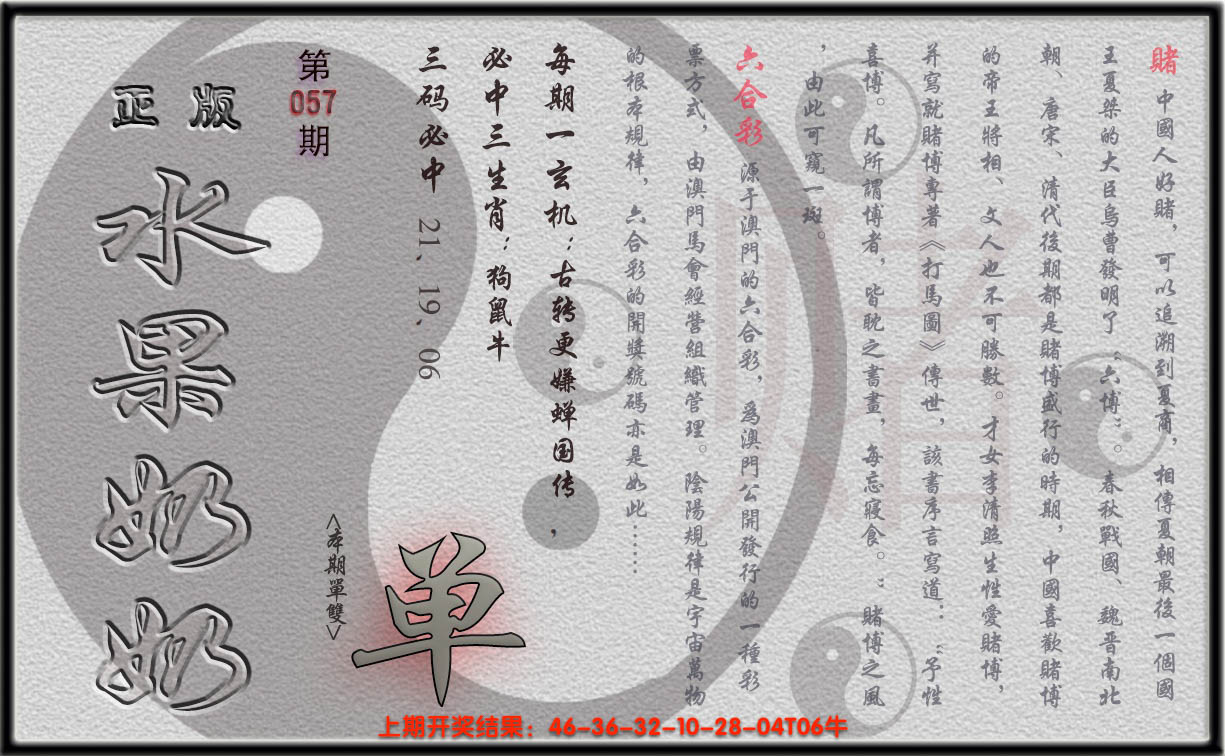 赌 中國人好賭，可以追溯到夏商，相傳夏朝最後一個國
王夏桀的大臣烏曹發明了“六博”。春秋戰國、魏晋南北
朝、唐宋、清代後期都是賭博盛行的時期，中國喜歡賭博
的帝王將相、文人也不可勝數。才女李清照生性愛賭博，
并寫就賭博專著《打馬圖》傳世，該書序言寫道：“予性
喜博。凡所謂博者，皆耽之書晝，每忘寢食。”賭博之風
，由此可窺一斑。
六合彩 源于澳門的六合彩，爲澳門公開發行的一種彩
票方式，由澳門馬會經營組織管理。陰陽規律是宇宙萬物
的根本規律，六合彩的開獎號碼亦是如此……
每期一玄机：古转更嫌蝉国传，
必中三生肖：狗鼠牛
三码必中 21、19、06
第
057
期
<本期單雙>
单
正版
水果奶奶
赌
上期开奖结果：46-36-32-10-28-04T06牛